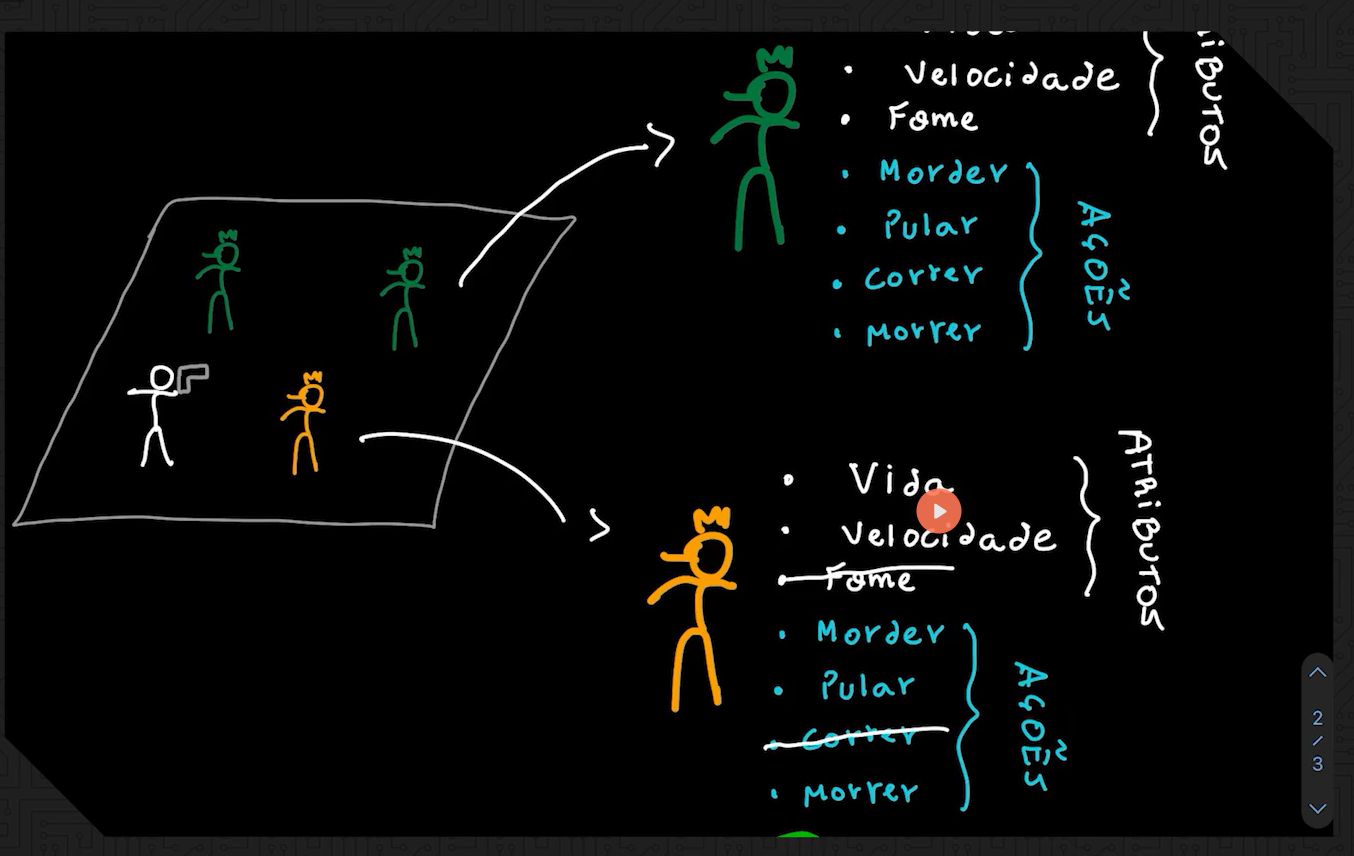 • Velocidade
• Fome
• Morder
• Pular
• Correr
• Morrer
AÇOẼS
• Vida
• Velocidade
• Fome
ATRIBUTOS
• Morder
• Pular
• Correr
• Morrer
AÇOẼS
2
/
3